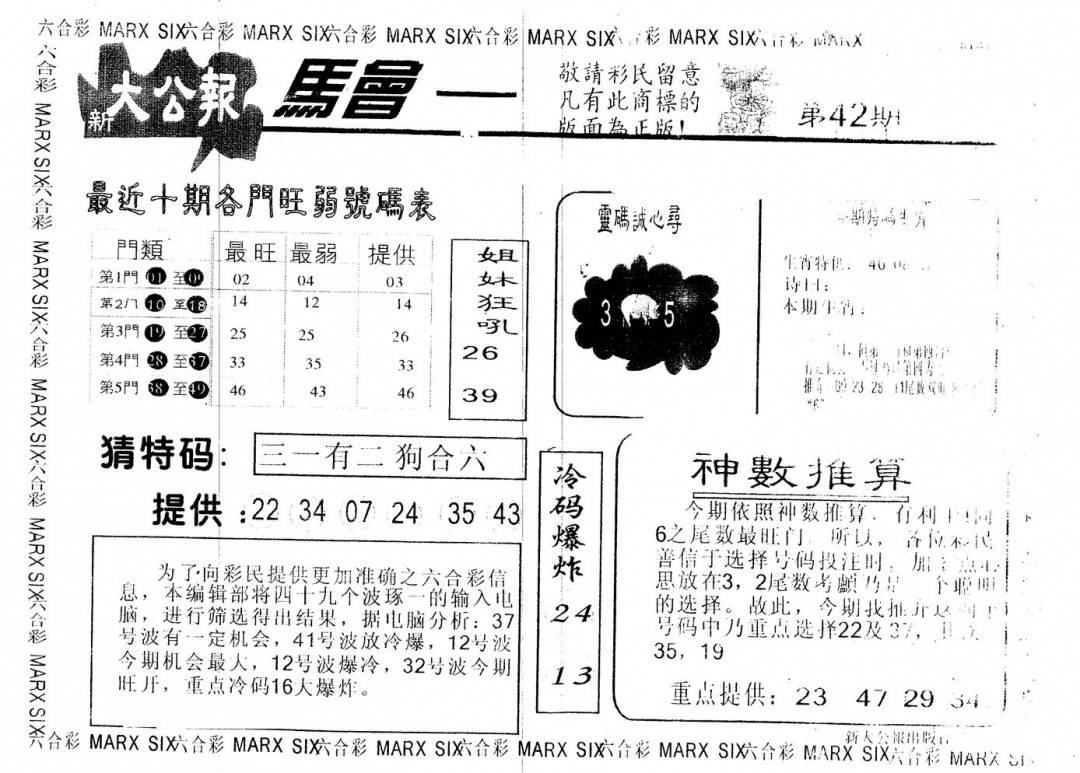 六合彩 MARX SIX六合彩 MARX SIX六合彩 MARX SIX六合彩 MARX SIX六合彩 MARX SIX六合彩 MARX
六合彩 MARX SIX六合彩 MARX SIX六合彩 MARX SIX六合彩 MARX SIX六合彩 MARX SIX
新大公報
馬會一
敬請彩民留意
凡有此商標的
版面為正版!
第42期
最近十期各門旺弱號碼表
門類 最旺 最弱 提供
第1門 01 至 09 02 04 03
第2门 10 至 18 14 12 14
第3門 19 至 27 25 25 26
第4門 28 至 37 33 35 33
第5門 38 至 49 46 43 46
姐
妹
狂
吼
26
39
靈碼誠心尋
3 5
期特碼生肖
生肖特供: 46 08
诗曰:
本期生肖:
推介 09 23 28
"6"
猜特码:
三一有二狗合六
提供:22 34 07 24 35 43
为了向彩民提供更加准确之六合彩信
息,本编辑部将四十九个波琢一的输入电
脑,进行筛选得出结果,据电脑分析:37
号波有一定机会,41号波放冷爆,12号波
今期机会最大,12号波爆冷,32号波今期
旺开,重点冷码16大爆炸。
冷
码
爆
炸
24
13
神數推算
今期依照神数推算,有利于
6之尾数最旺门。所以,各位彩民
善信于选择号码投注时,
思放在3,2尾数考顧乃是一个聪明
的选择。故此,今期找推介
号码中乃重点选择22及37,其次
35,19
重点提供:23 47 29 34
新大公報出版
六合彩 MARX SIX六合彩 MARX SIX六合彩 MARX SIX六合彩 MARX SIX六合彩 MARX SIX六合彩 MARX SIX六合彩 MARX SI